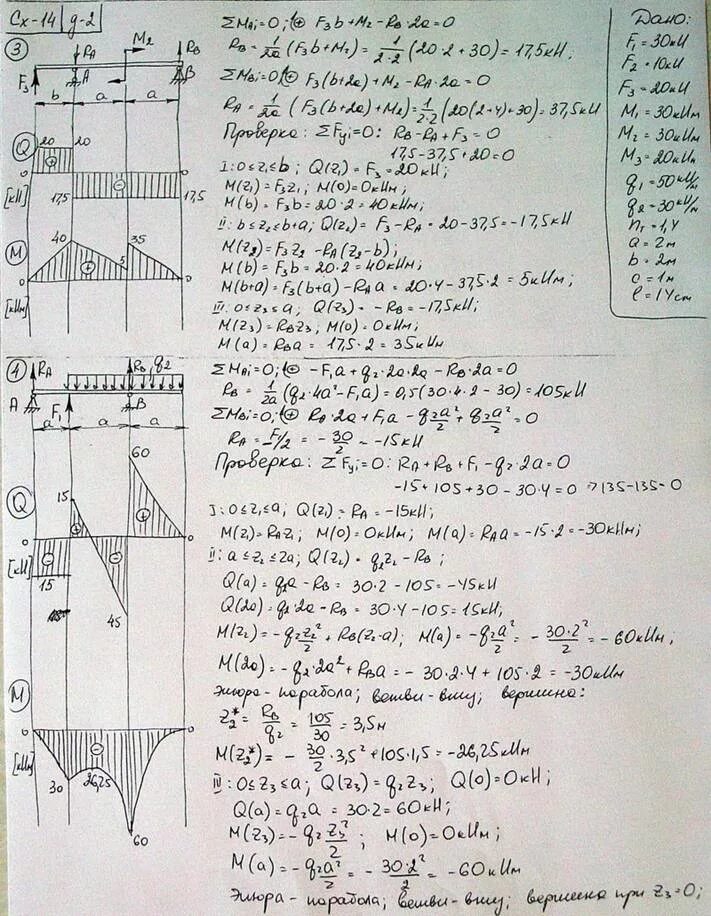 Сх-14 д-2
Дано:
F₁ = 30кН
F₂ = 10кН
F₃ = 20кН
M₁ = 30кНм
M₂ = 30кНм
M₃ = 20кНм
q₁ = 50 кН/м
q₂ = 30 кН/м
nт = 1,4
a = 2м
b = 2м
c = 1м
3
F₃ RA A M₂ RB B
b a a
Q 20 20
[кН] 17,5 17,5
M 40 5 35
[кНм]
ΣMAi=0; F₃b+M₂-RB·2a=0
RB = 1/2a (F₃b+M₂) = 1/2·2 (20·2+30) = 17,5кН.
ΣMBi=0; F₃(b+2a)+M₂-RA·2a=0
RA = 1/2a (F₃(b+2a)+M₂) = 1/2·2 (20(2+4)+30) = 37,5кН
Проверка: ΣFyi=0: RB-RA+F₃=0
17,5-37,5+20=0
I: 0≤z₁≤b; Q(z₁) = F₃ = 20кН;
M(z₁) = F₃z₁; M(0) = 0кНм;
M(b) = F₃b = 20·2 = 40кНм;
II: b≤z₂≤b+a; Q(z₂) = F₃-RA = 20-37,5 = -17,5кН
M(z₂) = F₃z₂ - RA(z₂-b);
M(b) = F₃b = 20·2 = 40кНм;
M(b+a) = F₃(b+a) - RAa = 20·4-37,5·2 = 5кНм;
III: 0≤z₃≤a; Q(z₃) = -RB = -17,5кН;
M(z₃) = RBz₃; M(0) = 0кНм;
M(a) = RBa = 17,5·2 = 35кНм
1
A RA F₁ RB B q₂
a a a
Q 15 60
[кН] 15 45
M
[кНм] 30 26,25 60
ΣMAi=0; -F₁a+q₂·2a·2a-RB·2a=0
RB = 1/2a (q₂·4a²-F₁a) = 0,5(30·4·2-30) = 105кН
ΣMBi=0; RA·2a+F₁a-q₂a²/2+q₂a²/2=0
RA = -F₁/2 = -30/2 = -15кН
Проверка: ΣFyi=0: RA+RB+F₁-q₂·2a=0
-15+105+30-30·4=0 → 135-135=0
I: 0≤z₁≤a; Q(z₁) = RA = -15кН;
M(z₁) = RAz₁; M(0) = 0кНм; M(a) = RAa = -15·2 = -30кНм;
II: a≤z₂≤2a; Q(z₂) = q₂z₂-RB;
Q(a) = q₂a-RB = 30·2-105 = -45кН
Q(2a) = q₂·2a-RB = 30·4-105 = 15кН;
M(z₂) = -q₂z₂²/2+RB(z₂-a); M(a) = -q₂a²/2 = -30·2²/2 = -60кНм;
M(2a) = -q₂·2a²+RBa = -30·2·4+105·2 = -30кНм
Эпюра - парабола; ветви - вниз; вершина:
z₂* = RB/q₂ = 105/30 = 3,5м
M(z₂*) = -30/2·3,5²+105·1,5 = -26,25кНм
III: 0≤z₃≤a; Q(z₃) = q₂z₃; Q(0) = 0кН;
Q(a) = q₂a = 30·2 = 60кН;
M(z₃) = -q₂z₃²/2; M(0) = 0кНм;
M(a) = -q₂a²/2 = -30·2²/2 = -60кНм
Эпюра - парабола; ветви - вниз; вершина при z₃=0;